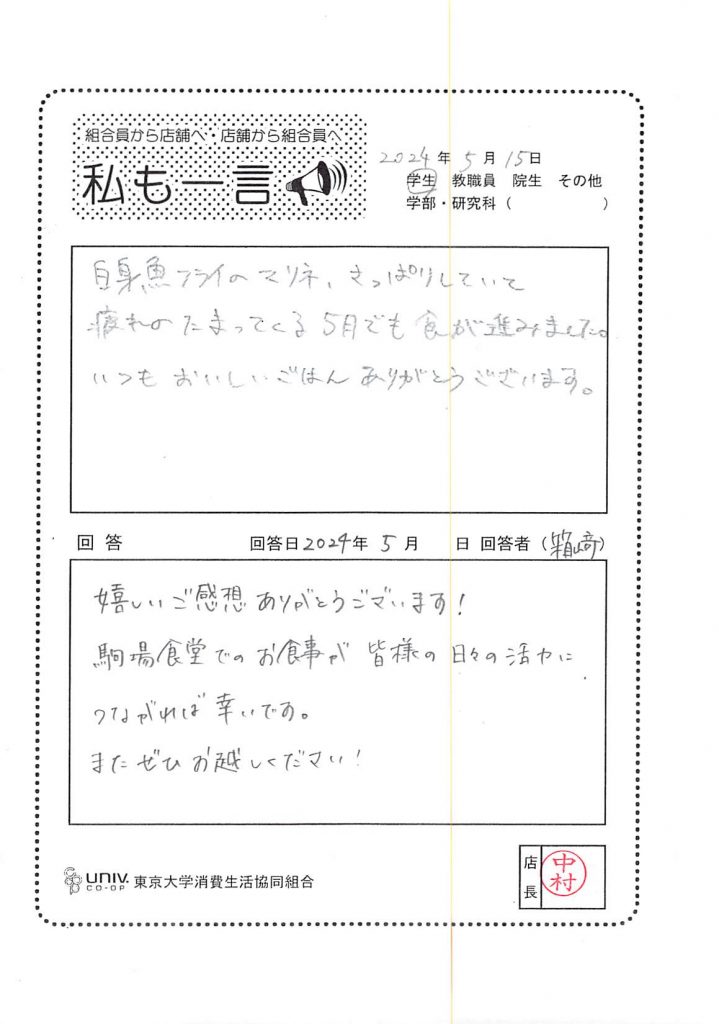 組合員から店舗へ・店舗から組合員へ
私も一言
2024年 5月 15日
学生 教職員 院生 その他
学部・研究科（ ）
白身魚フライのマリネ、さっぱりしていて
疲れのたまってくる5月でも食が進みました。
いつもおいしいごはんありがとうございます。
回答 回答日2024年 5月 日 回答者（箱﨑）
嬉しいご感想ありがとうございます！
駒場食堂でのお食事が皆様の日々の活力に
つながれば幸いです。
またぜひお越しください！
UNIV. CO-OP 東京大学消費生活協同組合
店長 中村